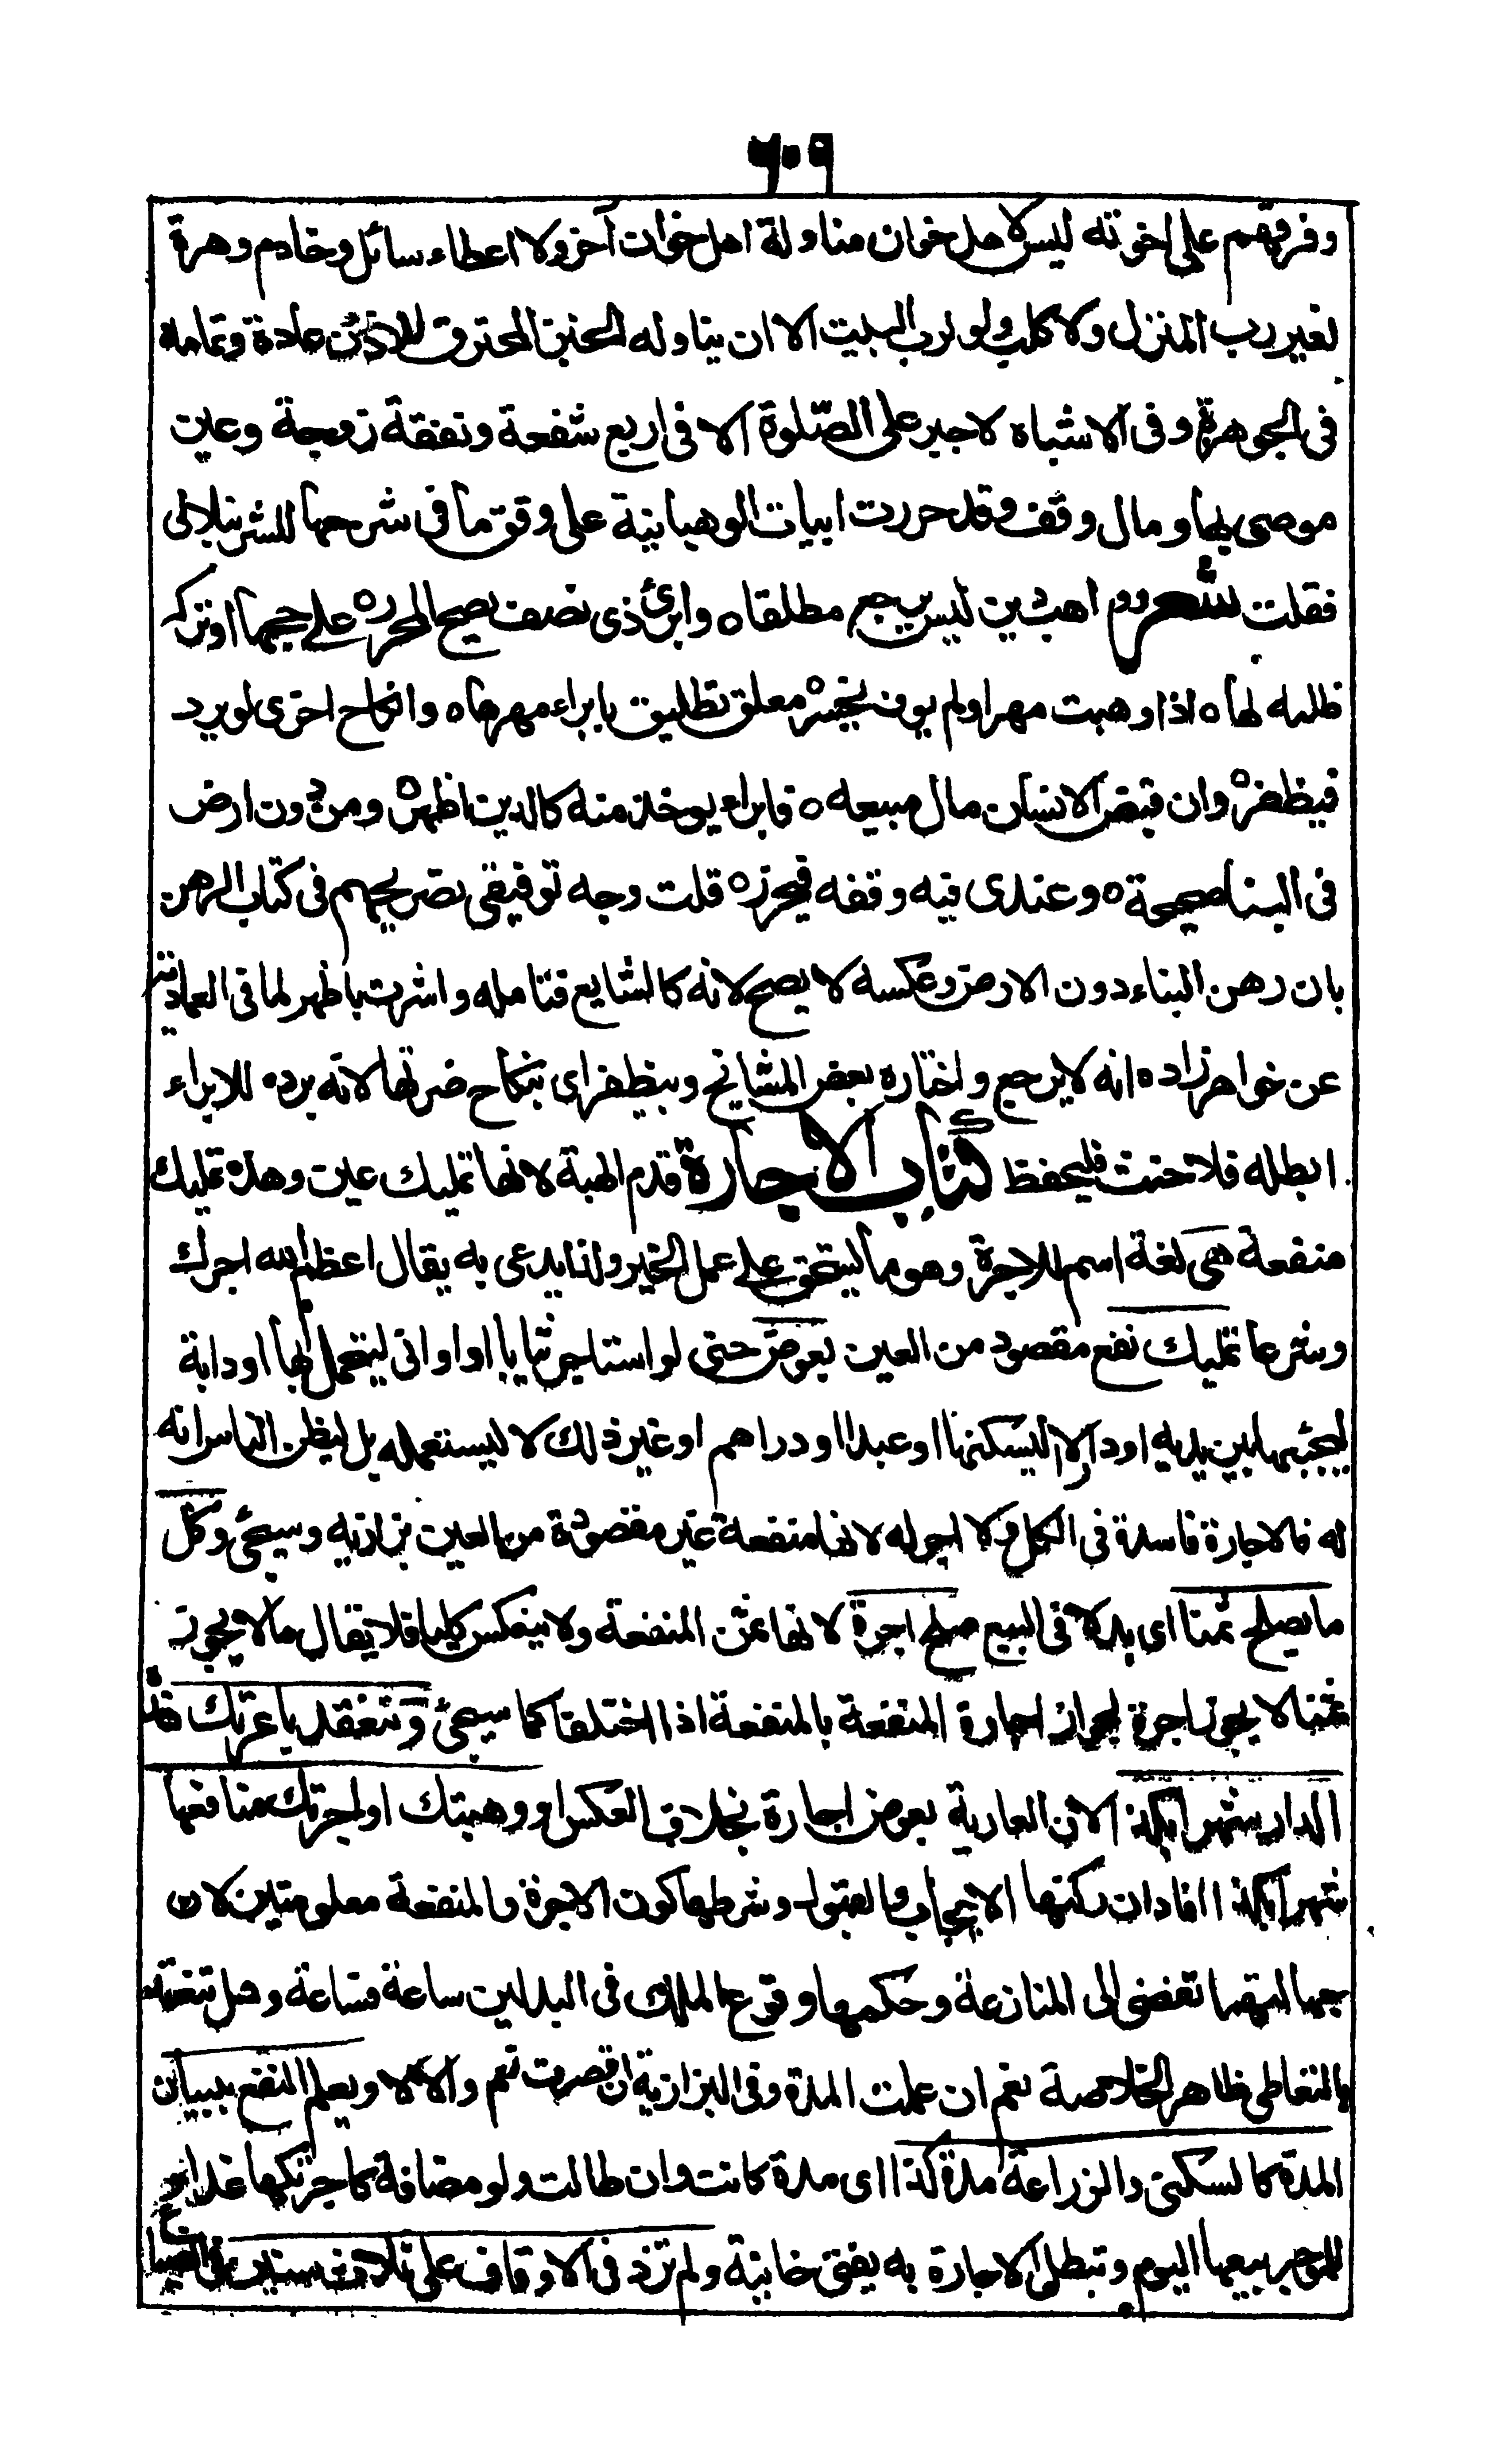 ٦٠٩
وفرقهم على اخوته ليس لاهل خوان مناولة اهل خوان آخر ولا اعطاء سائل وخادم وهرة
لغير رب المنزل ولا كلب ولو لرب البيت الا ان يناوله الخبز المحترق للاذن عادة وتمامه
فى الجوهرة وفى الاشباه لا جبر على الصّلوة الا فى اربع شفعة ونفقة زوجة وعين
موصى بها ومال وقف وقد حررت ابيات الوهبانية على وفق ما فى شرحها للشرنبلالى
فقلت شعر وم اهب دين ليس يرجع مطلقا ه وابرئ ذى نصف يصح المحرر ه على حجها او تركه
ظلمه لها ه اذا وهبت مهرا ولم يوف يخسر ه معلق تطليق بابراء مهرها ه وانكاح اخرى لو يرد
فيظفر ه وان قبض الانسان مال مبيعه ه فابراء يوخذ منه كالدين اظهر ه ومن دون ارض
فى البنا صحيحة ه وعندى فيه وقفه فيحرر ه قلت وجه توفيقى تصريحهم فى كتاب الرهن
بان رهن البناء دون الارض وعكسه لا يصح لانه كالشايع فتامله واشرت باظهر لما فى العمادية
عن خواهر زاده انه لا يرجع واختاره بعض المشايخ وبيظفر اى بنكاح ضرتها لانه برده للابراء
ابطله فلا حنث فليحفظ كتاب الاجارة قدم الهبة لانها تمليك عين وهذه تمليك
منفعة هى لغة اسم للاجرة وهو ما يستحق على عمل الخير ولذا يدعى به يقال اعظم الله اجرك
وشرعا تمليك نفع مقصود من العين بعوض حتى لو استاجر ثيابا او اوانى ليتجمل بها او دابة
ليجنبها بين يديه او دارا لا ليسكنها او عبدا او دراهم او غير ذلك لا ليستعمله بل ليظن الناس انه
له فالاجارة فاسدة فى الكل ولا اجر له لانها منفعة غير مقصودة من العين بزازيه وسيجئ وكل
ما يصلح ثمنا اى بدلا فى البيع صلح اجرة لانها ثمن المنفعة ولا ينعكس كليا فلا يقال ما لا يجوز
ثمنا لا يجوز اجرة لجواز اجارة المنفعة بالمنفعة اذا اختلفا كما سيجئ وتنعقد باعرتك هذه
الدار شهرا بكذا لان العارية بعوض اجارة بخلاف العكس او وهبتك او اجرتك منافعها
شهرا بكذا افاد ان ركنها الايجاب والقبول وشرطها كون الاجرة والمنفعة معلومتين لان
جهالتهما تفضى الى المنازعة وحكمها وقوع الملك فى البدلين ساعة فساعة وهل تنعقد
بالتعاطى ظاهر الخلاصة نعم ان علمت المدة وفى البزازية ان قصرت نعم والا لا ويعلم النفع ببيان
المدة كالسكنى والزراعة مدة كذا اى مدة كانت وان طالت ولو مضافة كاجرتكها غدا و
للموجر بيعها اليوم وتبطل الاجارة به يفتى خانية ولم تزد فى الاوقاف على ثلاث سنين فى الضياع